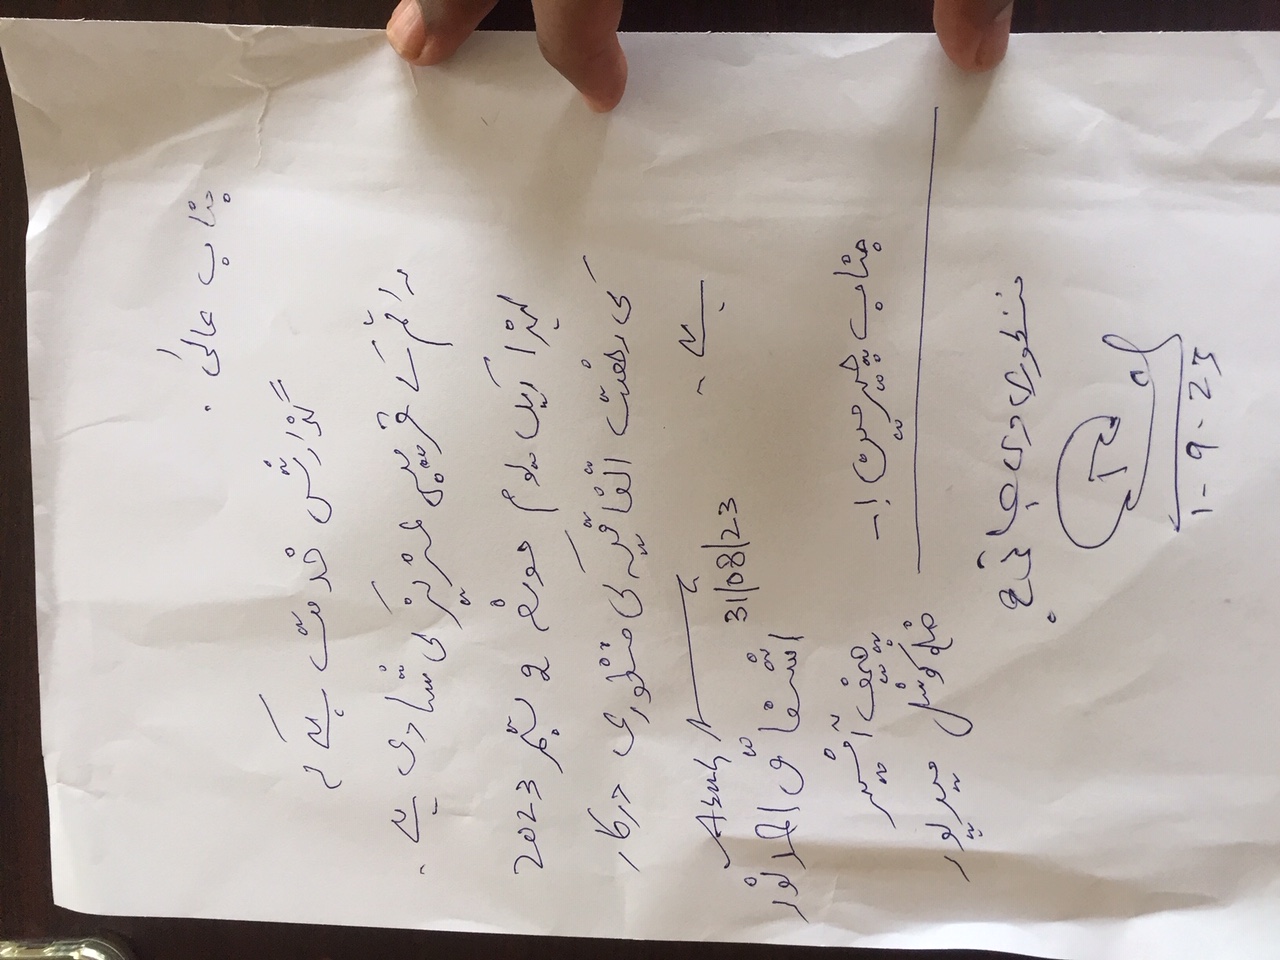 جناب عالیٰ .
گذارش خدمت ہے کہ
راقم کے قریبی عزیز کی شادی ہے .
لہذا ایک یوم مورخہ 2 ستمبر 2023
کی رخصت اتفاقیہ کی منظوری درکار
ہے -
31/08/23
اشفاق احمد نور
چیف آفیسر
ضلع کونسل میرپور
جناب چیرمین !-
منظوری دی جاتی ہے
1-9-23